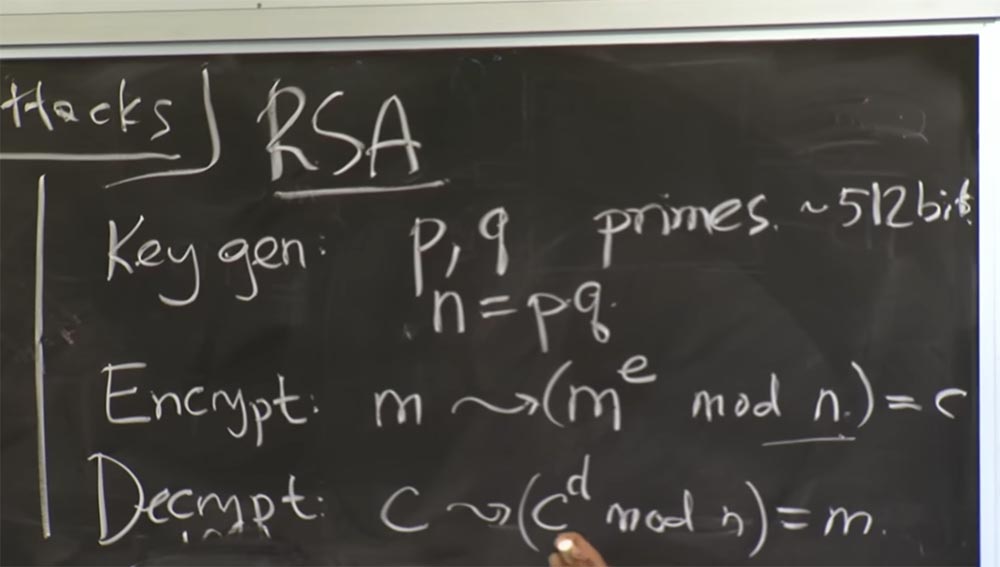 ttacks
RSA
Key gen: p, q primes. ~512bit
n = pq.
Encrypt: m ⇝ (m^e mod n.) = c
Decrypt: c ⇝ (c^d mod n) = m.